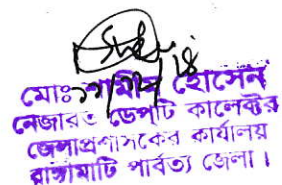 মোঃ শামীম হোসেন
নেজারত ডেপুটি কালেক্টর
জেলাপ্রশাসকের কার্যালয়
রাঙ্গামাটি পার্বত্য জেলা।